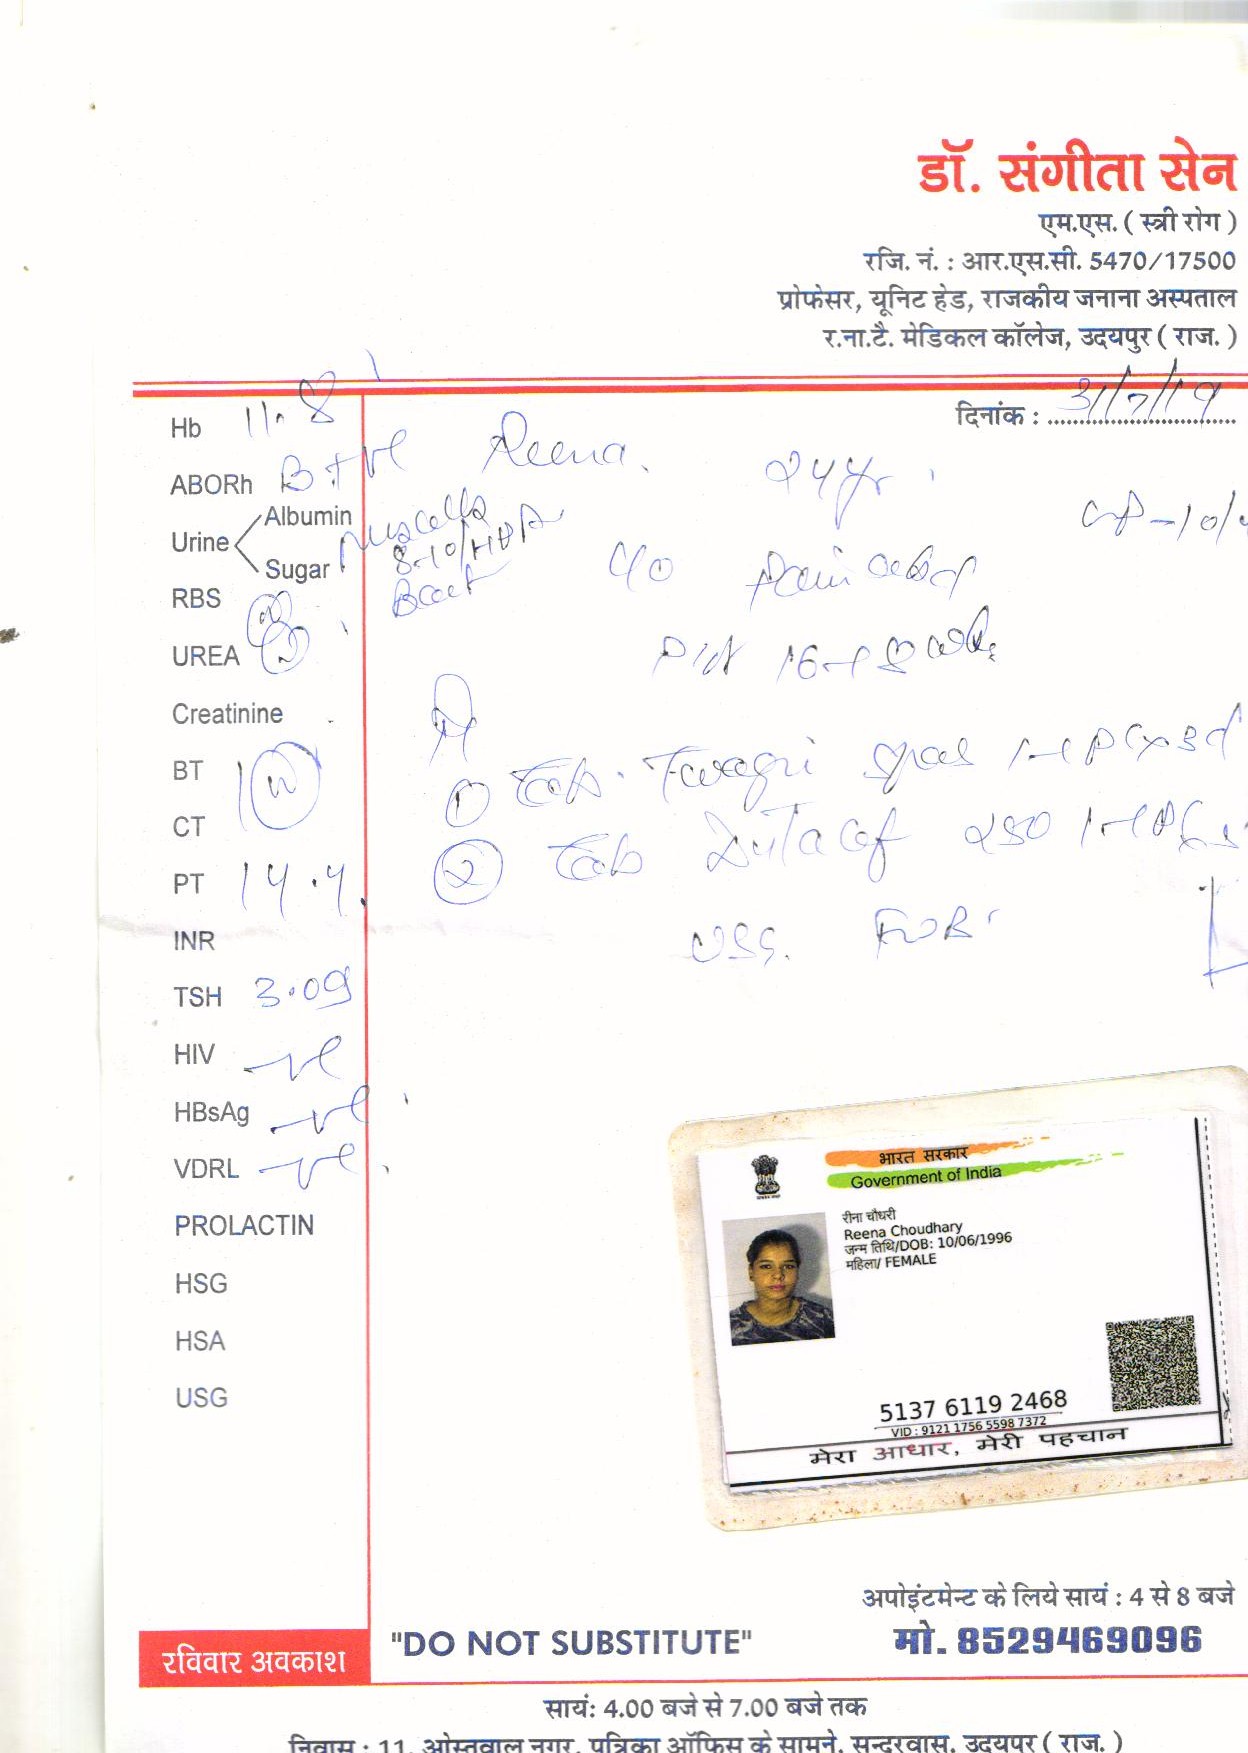 डॉ. संगीता सेन
एम.एस. ( स्त्री रोग )
रजि. नं. : आर.एस.सी. 5470/17500
प्रोफेसर, यूनिट हेड, राजकीय जनाना अस्पताल
र.ना.टै. मेडिकल कॉलेज, उदयपुर ( राज. )
दिनांक : 31/7/19
Hb 11.8
ABORh B +ve
Reena. 24yr.
Urine Albumin
Sugar
Puscells
8-10/HPF
Bact
RBS
UREA
Creatinine
BT
CT
PT 14.4
INR
TSH 3.09
HIV -ve
HBsAg -ve
VDRL -ve
PROLACTIN
HSG
HSA
USG
C/O Pain
16-18
① Tab.
② Tab 250
USG.
भारत सरकार
Government of India
रीना चौधरी
Reena Choudhary
जन्म तिथि/DOB: 10/06/1996
महिला/ FEMALE
5137 6119 2468
VID : 9121 1756 5598 7372
मेरा आधार, मेरी पहचान
अपोइंटमेन्ट के लिये सायं : 4 से 8 बजे
रविवार अवकाश
"DO NOT SUBSTITUTE"
मो. 8529469096
सायं: 4.00 बजे से 7.00 बजे तक
निवास : 11, ओस्तवाल नगर, पत्रिका ऑफिस के सामने, सुन्दरवास, उदयपुर ( राज. )